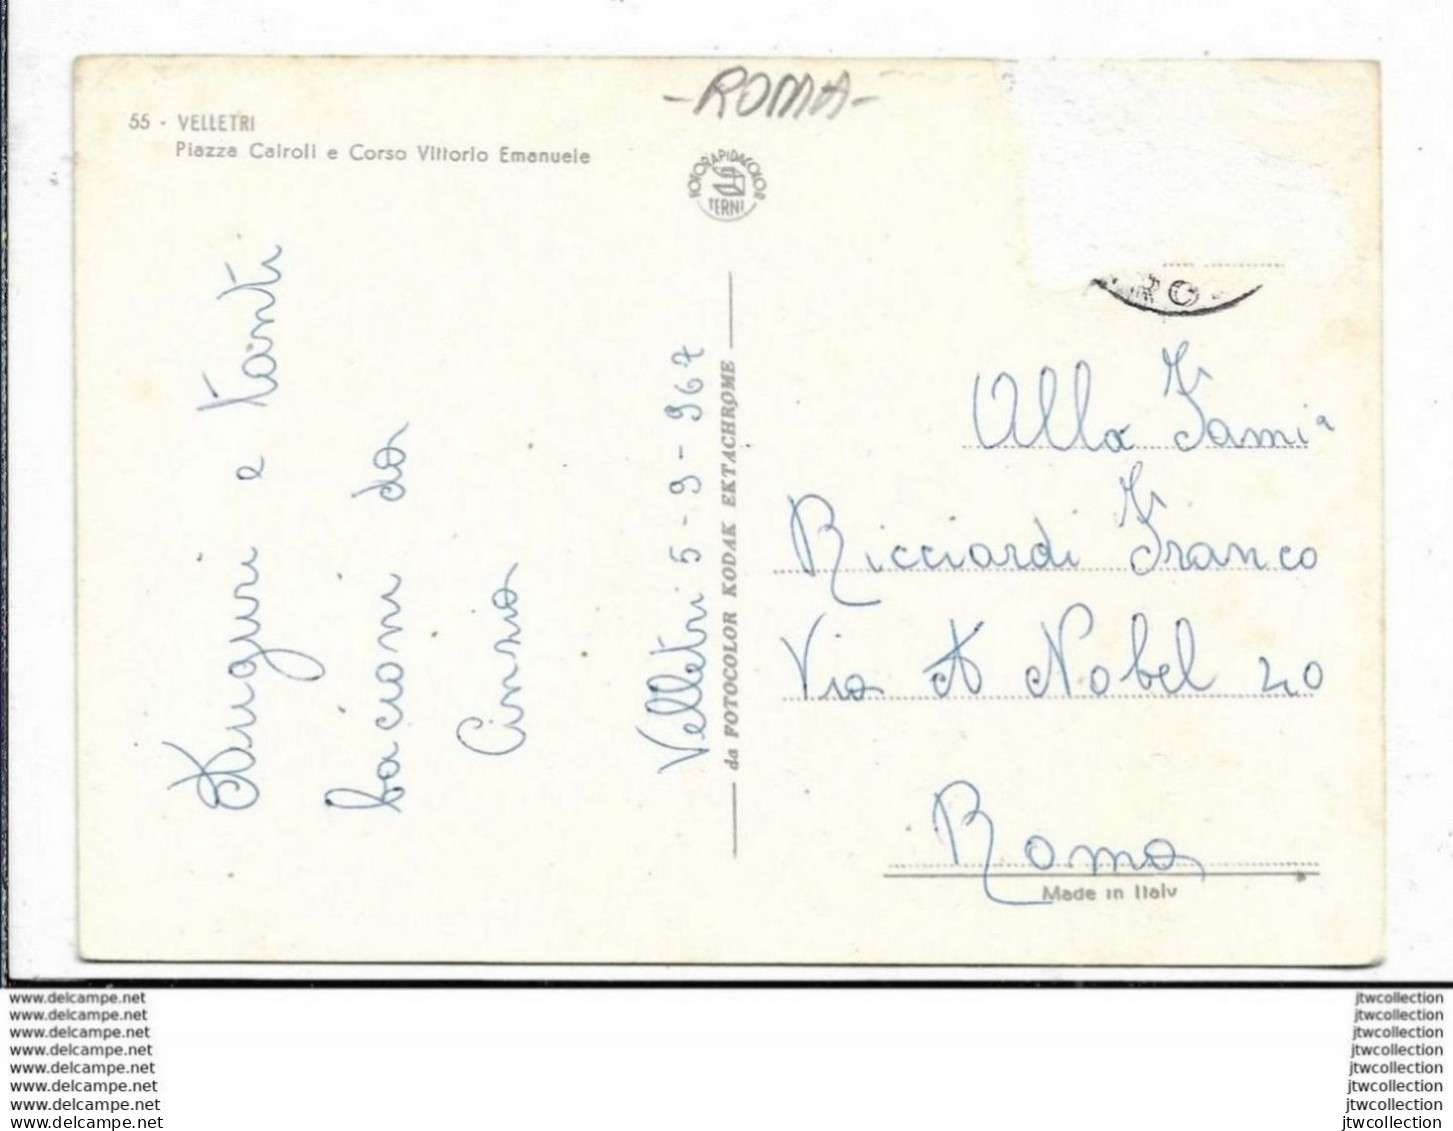 - ROMA -
55 - VELLETRI
Piazza Cairoli e Corso Vittorio Emanuele
FOTORAPIDACOLOR
TERNI
Auguri e tanti
bacioni da
Cinzia
Velletri 5-9-967
da FOTOCOLOR KODAK EKTACHROME
RO
Alla Famiª
Ricciardi Franco
Via A Nobel 20
Roma
Made in Italy
www.delcampe.net
www.delcampe.net
www.delcampe.net
www.delcampe.net
www.delcampe.net
www.delcampe.net
www.delcampe.net
www.delcampe.net
jtwcollection
jtwcollection
jtwcollection
jtwcollection
jtwcollection
jtwcollection
jtwcollection
jtwcollection